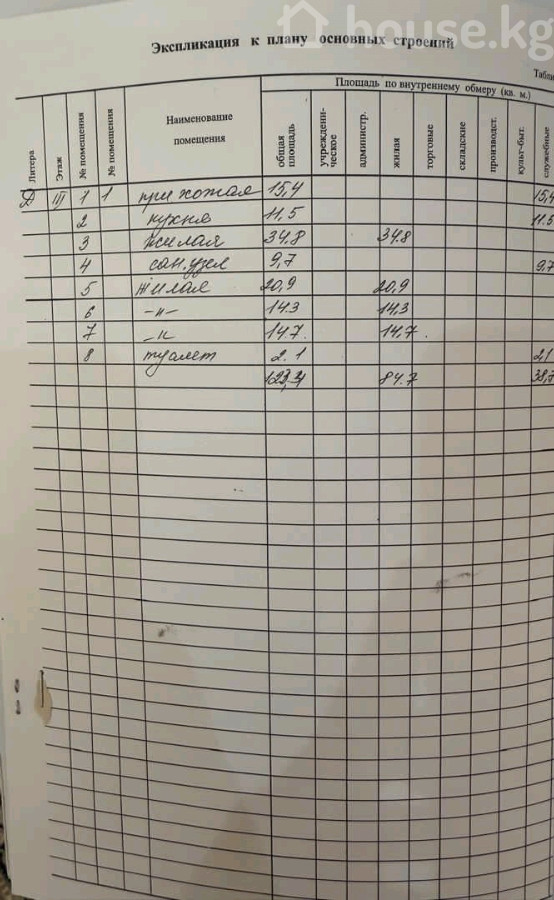 house.kg
Экспликация к плану основных строений
Табли
Литера
Этаж
№ помещения
№ помещения
Наименование помещения
Площадь по внутреннему обмеру (кв. м.)
общая площадь
учреждени-ческое
администр.
жилая
торговые
складские
производст.
культ-быт.
служебные
Д III 1 1 прихожая 15,4 15,4
2 кухня 11,5 11.5
3 жилая 34,8 34.8
4 сан.узел 9,7 9,7
5 жилая 20,9 20,9
6 -"- 14.3 14,3
7 -"- 14.7. 14,7.
8 туалет 2.1 2,1
84.7 38,7